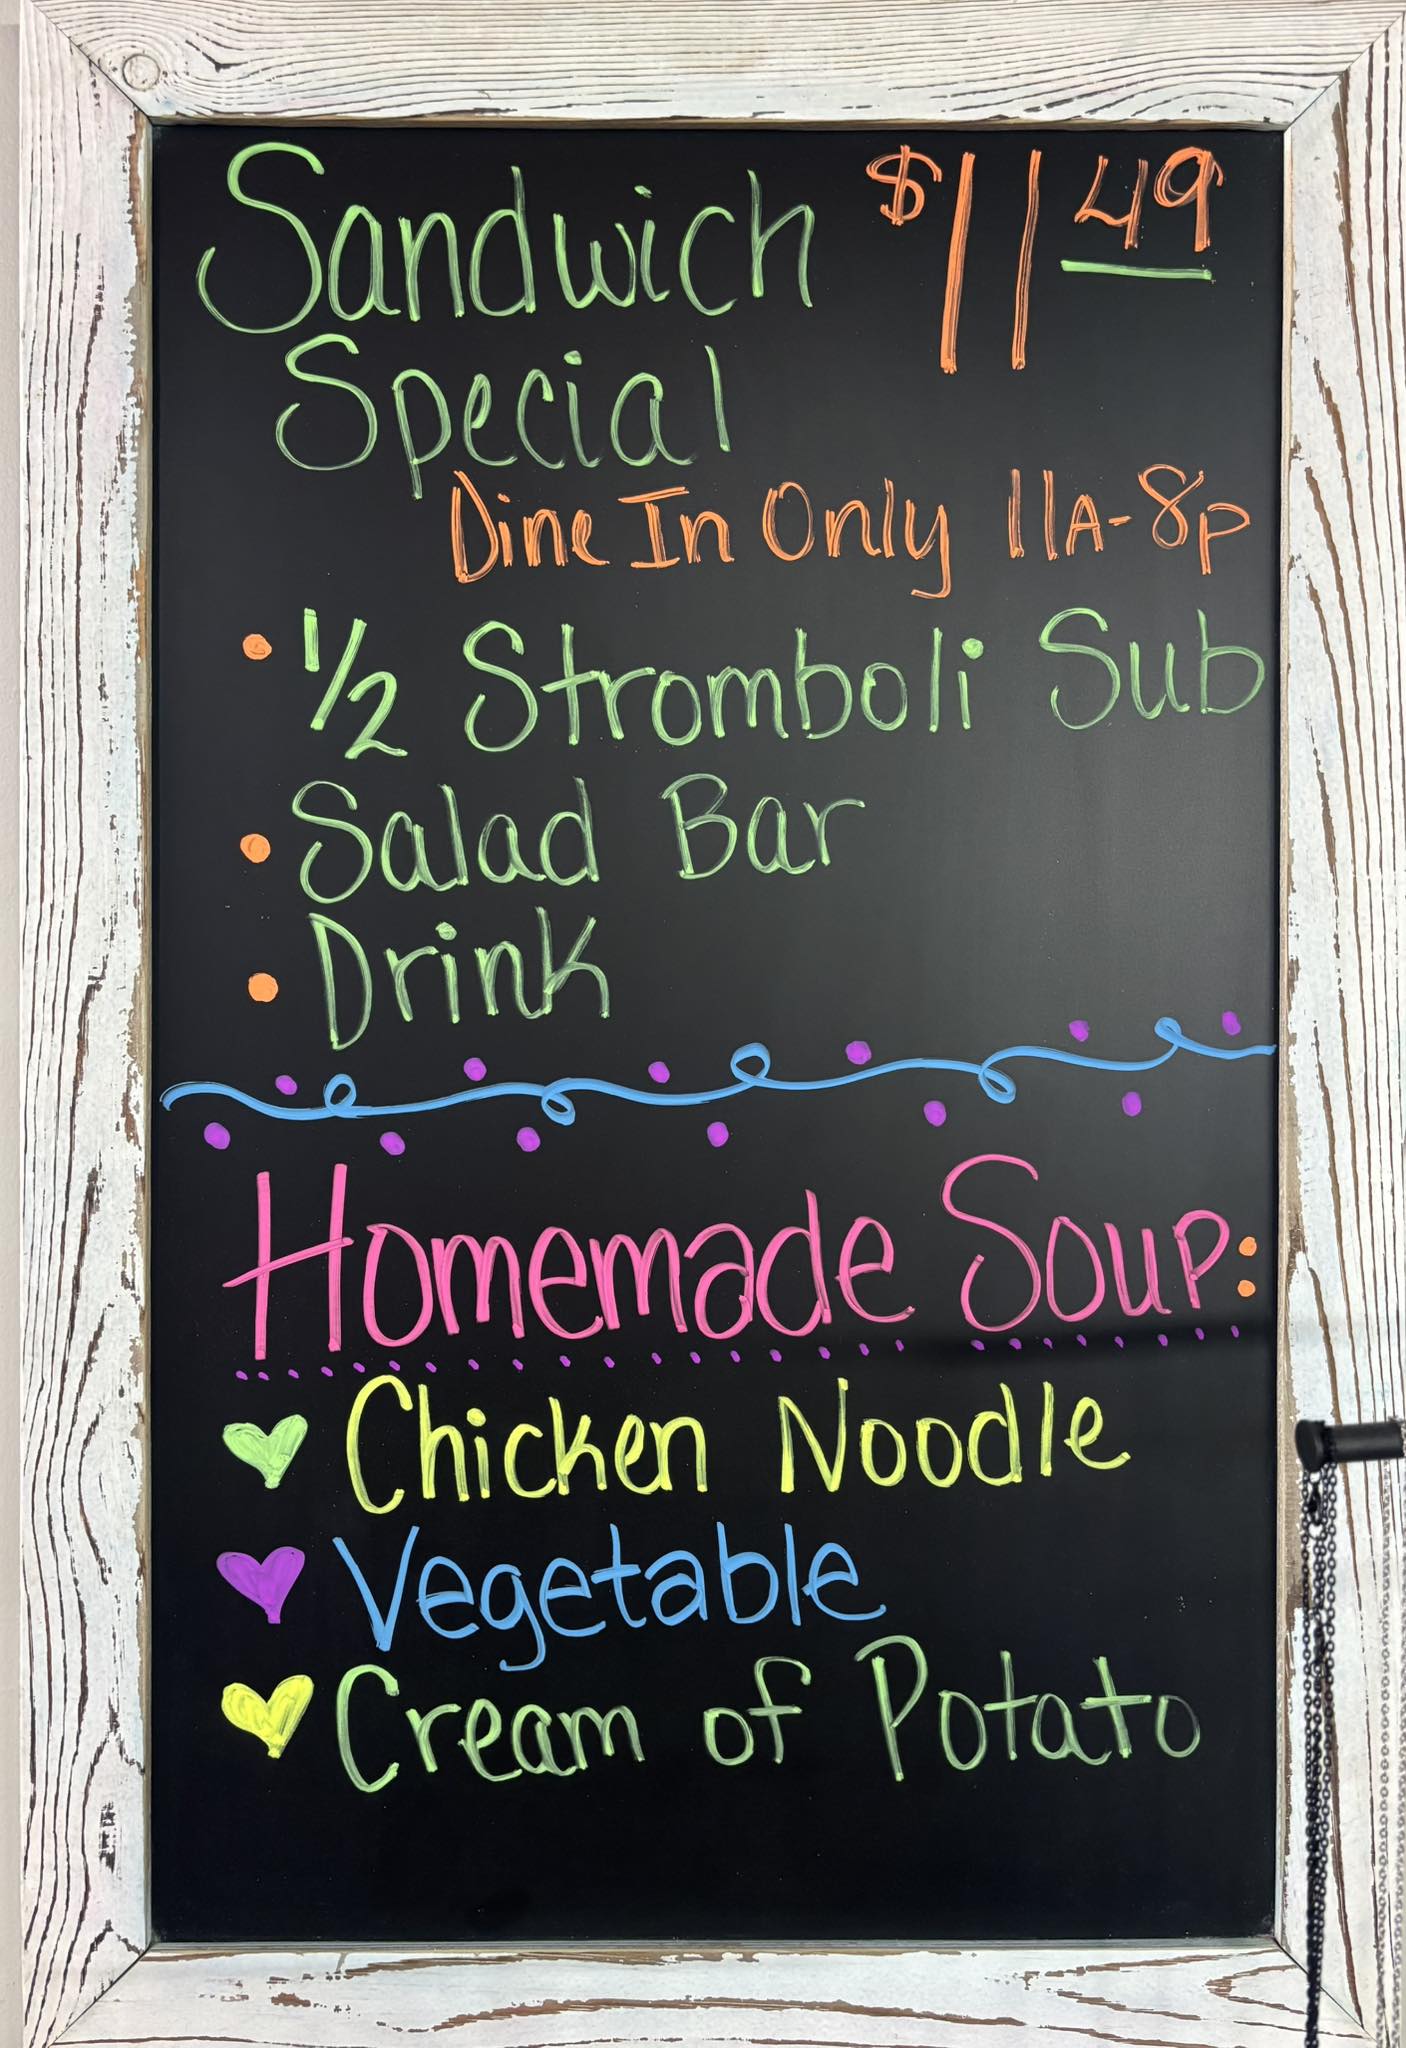 Sandwich $11 49
Special
Dine In Only 11A-8p
• 1/2 Stromboli Sub
• Salad Bar
• Drink
Homemade Soup:
Chicken Noodle
Vegetable
Cream of Potato